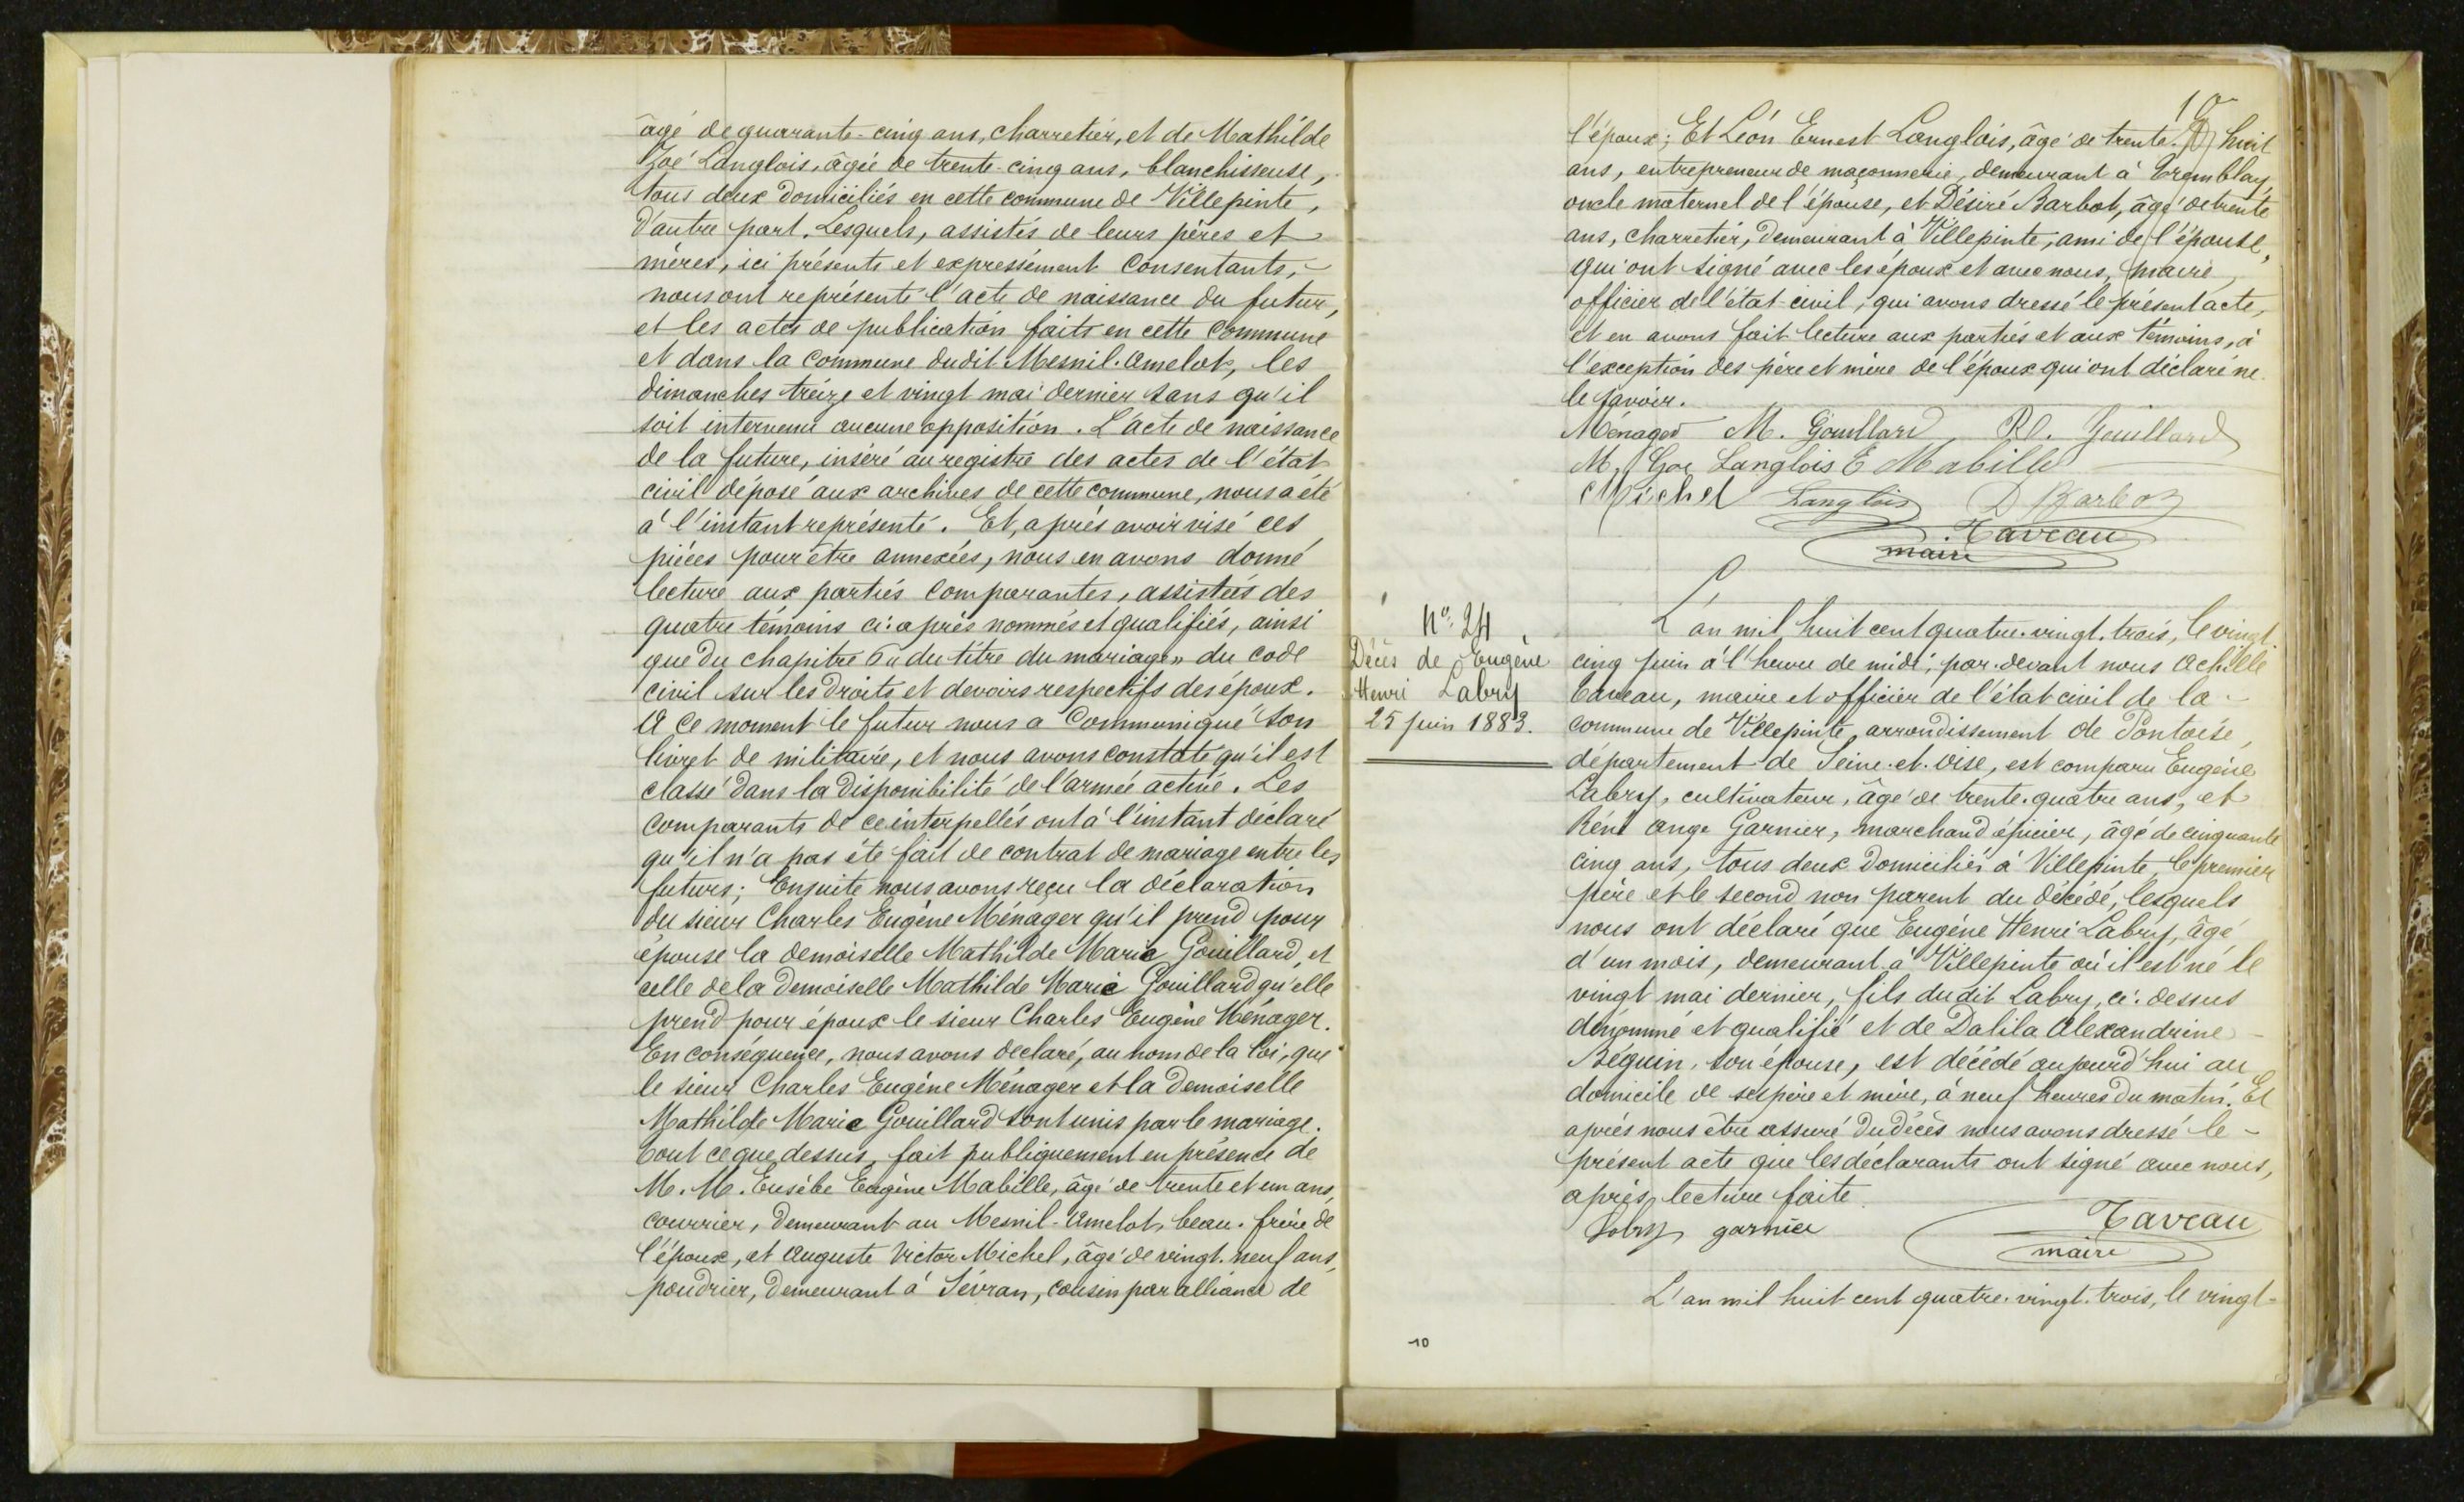 âgé de quarante-cinq ans, charretier, et de Mathilde
Zoé Langlois, âgée de trente-cinq ans, blanchisseuse,
tous deux domiciliés en cette commune de Villepinte,
d'autre part. Lesquels, assistés de leurs pères et
mères, ici présents et expressément consentants,
nous ont représenté l'acte de naissance du futur,
et les actes de publication faits en cette commune
et dans la commune dudit Mesnil-Amelot, les
dimanches treize et vingt mai dernier sans qu'il
soit intervenu aucune opposition. L'acte de naissance
de la future, inséré au registre des actes de l'état
civil déposé aux archives de cette commune, nous a été
à l'instant représenté. Et, après avoir visé ces
pièces pour être annexées, nous en avons donné
lecture aux parties comparantes, assistées des
quatre témoins ci-après nommés et qualifiés, ainsi
que du chapitre 6 " du titre du mariage " du code
civil sur les droits et devoirs respectifs des époux.
A ce moment le futur nous a communiqué son
livret de militaire, et nous avons constaté qu'il est
classé dans la disponibilité de l'armée active. Les
comparants de ce interpellés ont à l'instant déclaré
qu'il n'a pas été fait de contrat de mariage entre les
futurs; Ensuite nous avons reçu la déclaration
du sieur Charles Eugène Ménager qu'il prend pour
épouse la demoiselle Mathilde Maria Gouillard, et
celle de la demoiselle Mathilde Maria Gouillard qu'elle
prend pour époux le sieur Charles Eugène Ménager.
En conséquence, nous avons déclaré, au nom de la loi, que
le sieur Charles Eugène Ménager et la demoiselle
Mathilde Maria Gouillard sont unis par le mariage.
Tout ce que dessus, fait publiquement en présence de
M. M. Eusèbe Eugène Mabille, âgé de trente et un ans,
courrier, demeurant au Mesnil-Amelot, beau-frère de
l'époux, et Auguste Victor Michel, âgé de vingt-neuf ans,
poudrier, demeurant à Sévran, cousin par alliance de
10
l'époux; Et Léon Ernest Langlois, âgé de trente-huit
ans, entrepreneur de maçonnerie, demeurant à Tremblay,
oncle maternel de l'épouse, et Désiré Barbot, âgé de trente
ans, charretier, demeurant à Villepinte, ami de l'épouse,
qui ont signé avec les époux et avec nous, maire,
officier de l'état-civil, qui avons dressé le présent acte,
et en avons fait lecture aux parties et aux témoins, à
l'exception des père et mère de l'époux qui ont déclaré ne
le savoir.
Ménager M. Gouillard Gouillard
M. Zoé Langlois E Mabille
Michel Langlois D Barbot
Taveau
maire
N° 24
Décès de Eugène
Henri Labry
25 juin 1883.
L'an mil huit cent quatre-vingt-trois, le vingt
cinq juin à l'heure de midi, par-devant nous Achille
Taveau, maire et officier de l'état civil de la
commune de Villepinte, arrondissement de Pontoise,
département de Seine-et-Oise, est comparu Eugène
Labry, cultivateur, âgé de trente-quatre ans, et
René Ange Garnier, marchand épicier, âgé de cinquante
cinq ans, tous deux domiciliés à Villepinte, le premier
père et le second non parent du décédé, lesquels
nous ont déclaré que Eugène Henri Labry, âgé
d'un mois, demeurant à Villepinte où il est né le
vingt mai dernier, fils dudit Labry, ci-dessus
dénommé et qualifié et de Dalila Alexandrine
Béguin, son épouse, est décédé aujourd'hui au
domicile de ses père et mère, à neuf heures du matin. Et
après nous être assuré du décès nous avons dressé le
présent acte que les déclarants ont signé avec nous,
après lecture faite.
Labry garnier Taveau
maire
L'an mil huit cent quatre-vingt-trois, le vingt-
10